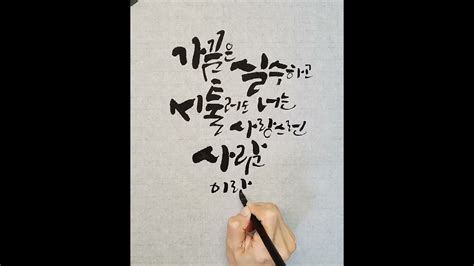 가끔은
실수하고
서툴러도 너는
사랑스런
사람
이라